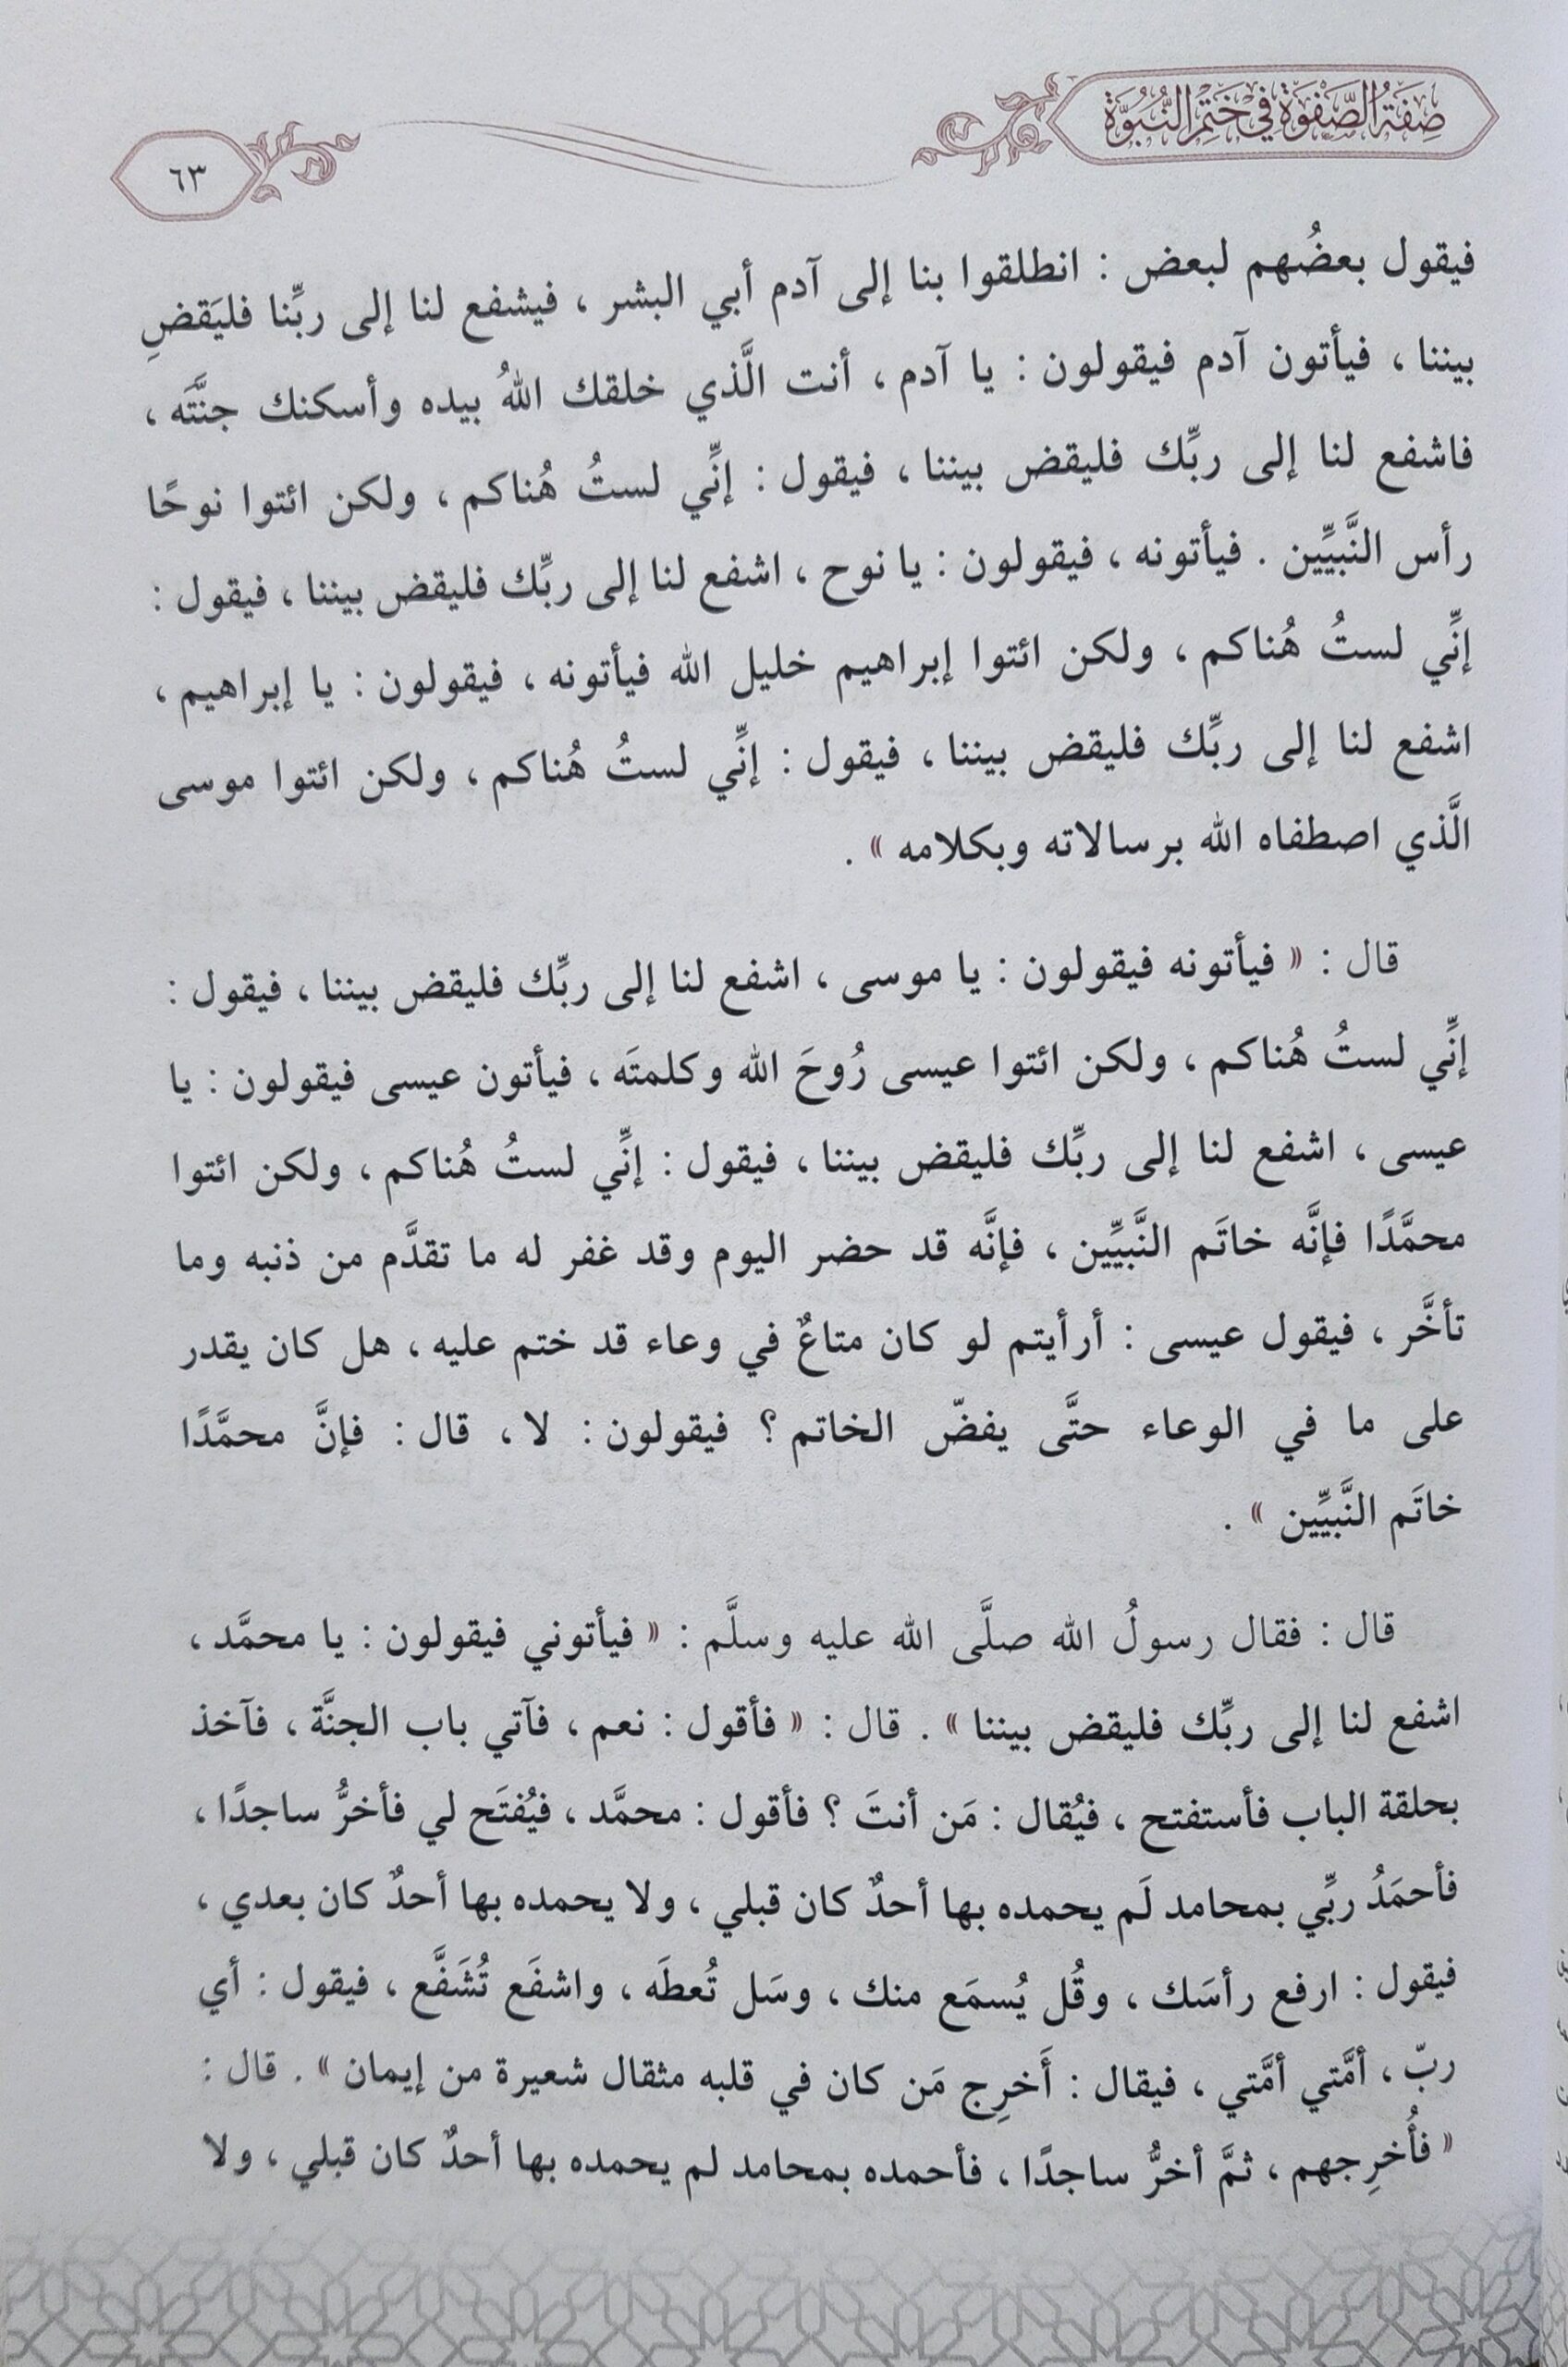 صِفَةُ الصَّفْوَةِ فِي خَتْمِ النُّبُوَّةِ
٦٣
فيقول بعضُهم لبعض : انطلقوا بنا إلى آدم أبي البشر ، فيشفع لنا إلى ربِّنا فليَقضِ
بيننا ، فيأتون آدم فيقولون : يا آدم ، أنت الَّذي خلقك اللهُ بيده وأسكنك جنَّتَه ،
فاشفع لنا إلى ربِّك فليقض بيننا ، فيقول : إنِّي لستُ هُناكم ، ولكن ائتوا نوحًا
رأس النَّبيِّين . فيأتونه ، فيقولون : يا نوح ، اشفع لنا إلى ربِّك فليقض بيننا ، فيقول :
إنِّي لستُ هُناكم ، ولكن ائتوا إبراهيم خليل الله فيأتونه ، فيقولون : يا إبراهيم ،
اشفع لنا إلى ربِّك فليقض بيننا ، فيقول : إنِّي لستُ هُناكم ، ولكن ائتوا موسى
الَّذي اصطفاه الله برسالاته وبكلامه » .
قال : « فيأتونه فيقولون : يا موسى ، اشفع لنا إلى ربِّك فليقض بيننا ، فيقول :
إنِّي لستُ هُناكم ، ولكن ائتوا عيسى رُوحَ الله وكلمتَه ، فيأتون عيسى فيقولون : يا
عيسى ، اشفع لنا إلى ربِّك فليقض بيننا ، فيقول : إنِّي لستُ هُناكم ، ولكن ائتوا
محمَّدًا فإنَّه خاتَم النَّبيِّين ، فإنَّه قد حضر اليوم وقد غفر له ما تقدَّم من ذنبه وما
تأخَّر ، فيقول عيسى : أرأيتم لو كان متاعٌ في وعاء قد ختم عليه ، هل كان يقدر
على ما في الوعاء حتَّى يفضّ الخاتم ؟ فيقولون : لا ، قال : فإنَّ محمَّدًا
خاتَم النَّبيِّين » .
قال : فقال رسولُ الله صلَّى الله عليه وسلَّم : « فيأتوني فيقولون : يا محمَّد ،
اشفع لنا إلى ربِّك فليقض بيننا » . قال : « فأقول : نعم ، فآتي باب الجنَّة ، فآخذ
بحلقة الباب فأستفتح ، فيُقال : مَن أنتَ ؟ فأقول : محمَّد ، فيُفتَح لي فأخرُّ ساجدًا ،
فأحمَدُ ربِّي بمحامد لَم يحمده بها أحدٌ كان قبلي ، ولا يحمده بها أحدٌ كان بعدي ،
فيقول : ارفع رأسَك ، وقُل يُسمَع منك ، وسَل تُعطَه ، واشفَع تُشَفَّع ، فيقول : أي
ربّ ، أمَّتي أمَّتي ، فيقال : أَخرِج مَن كان في قلبه مثقال شعيرة من إيمان » . قال :
« فأُخرِجهم ، ثمَّ أخرُّ ساجدًا ، فأحمده بمحامد لم يحمده بها أحدٌ كان قبلي ، ولا